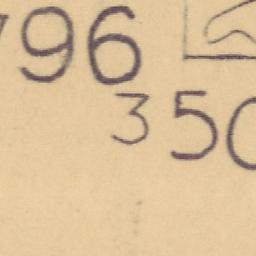 796
3 50